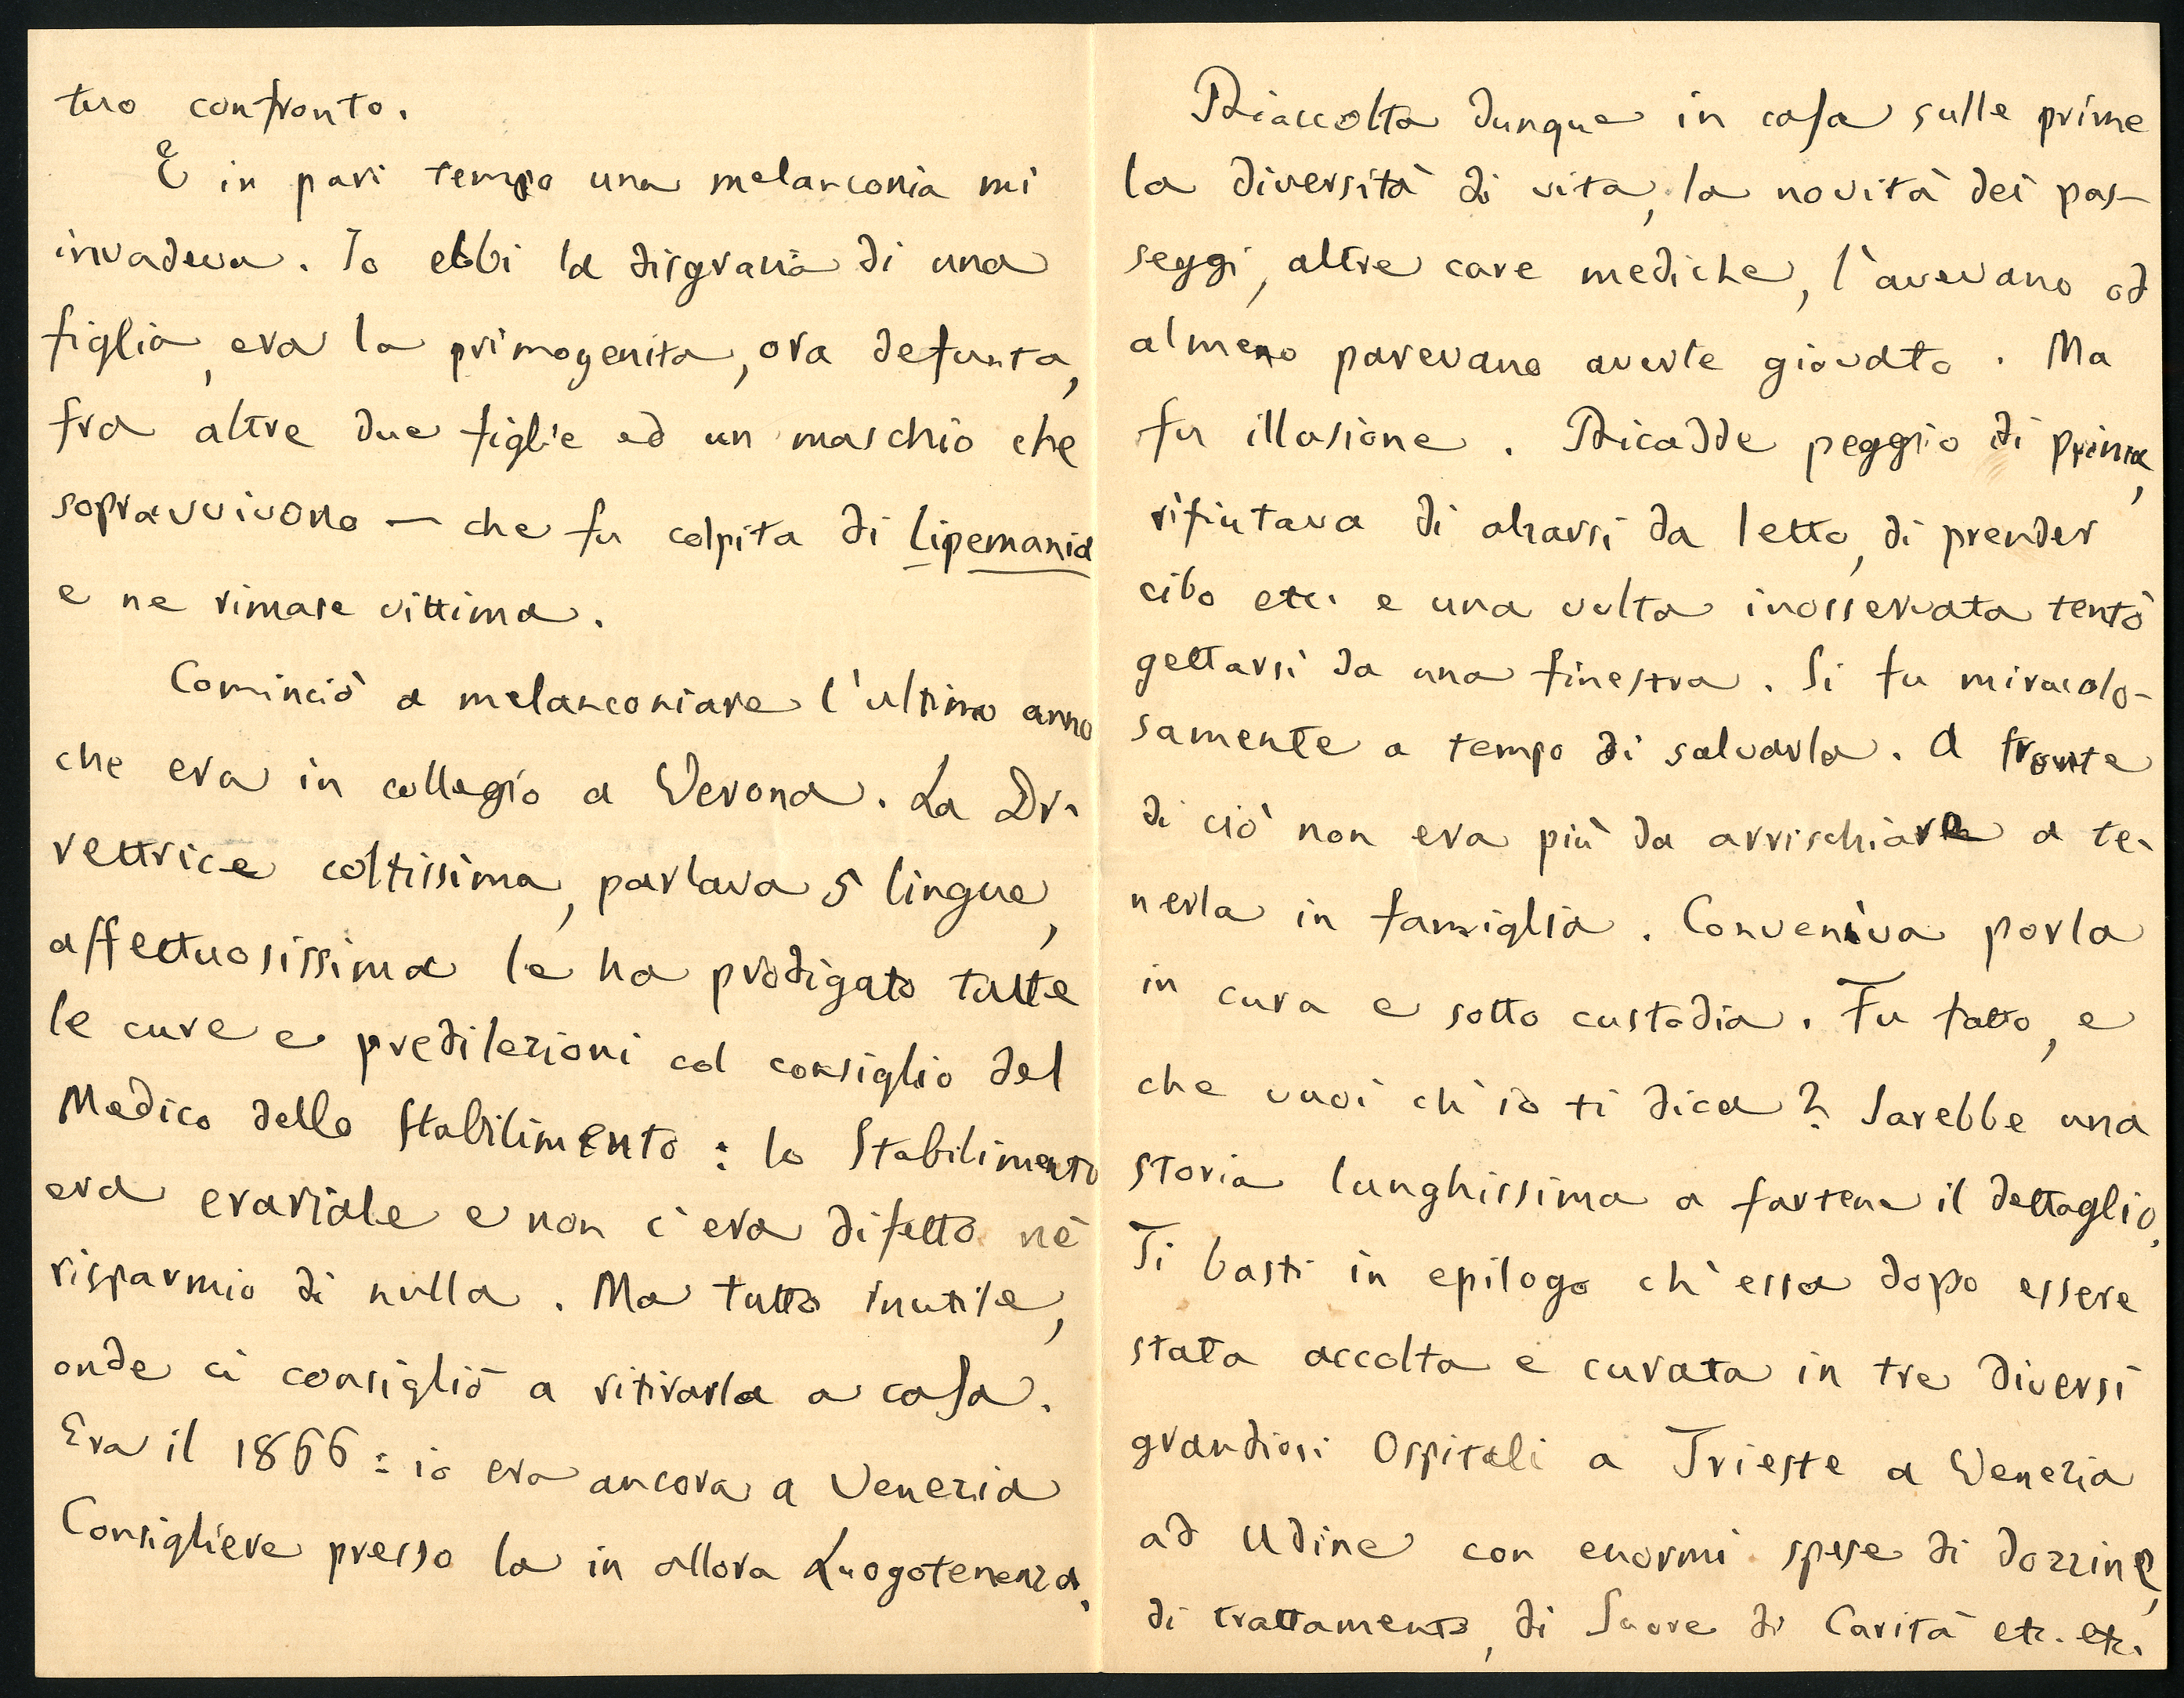 tuo confronto.
E in pari tempo una melanconia mi
invadeva. Io ebbi la disgrazia di una
figlia, era la primogenita, ora defunta,
fra altre due figlie ed un maschio che
sopravvivono — che fu colpita di lipemania
e ne rimase vittima.
Cominciò a melanconiare l'ultimo anno
che era in collegio a Verona. La Di-
rettrice coltissima, parlava 5 lingue,
affettuosissima le ha prodigato tutte
le cure e predilezioni col consiglio del
Medico dello Stabilimento: lo Stabilimento
era erariale e non c'era difetto nè
risparmio di nulla. Ma tutto inutile,
onde ci consigliò a ritirarla a casa.
Era il 1866: io era ancora a Venezia
Consigliere presso la in allora Luogotenenza.
Riaccolta dunque in casa sulle prime
la diversità di vita, la novità dei pas-
seggi, altre cure mediche, l'avevano od
almeno parevano averle giovato. Ma
fu illusione. Ricadde peggio di prima,
rifiutava di alzarsi da letto, di prender
cibo etc. e una volta inosservata tentò
gettarsi da una finestra. Si fu miracolo-
samente a tempo di salvarla. A fronte
di ciò non era più da arrischiare a te-
nerla in famiglia. Conveniva porla
in cura e sotto custodia. Fu fatto, e
che vuoi ch'io ti dica? Sarebbe una
storia lunghissima a fartene il dettaglio.
Ti basti in epilogo ch'essa dopo essere
stata accolta e curata in tre diversi
grandiosi Ospitali a Trieste a Venezia
ad Udine con enormi spese di dozzine,
di trattamento, di Suore di Carità etc. etc.